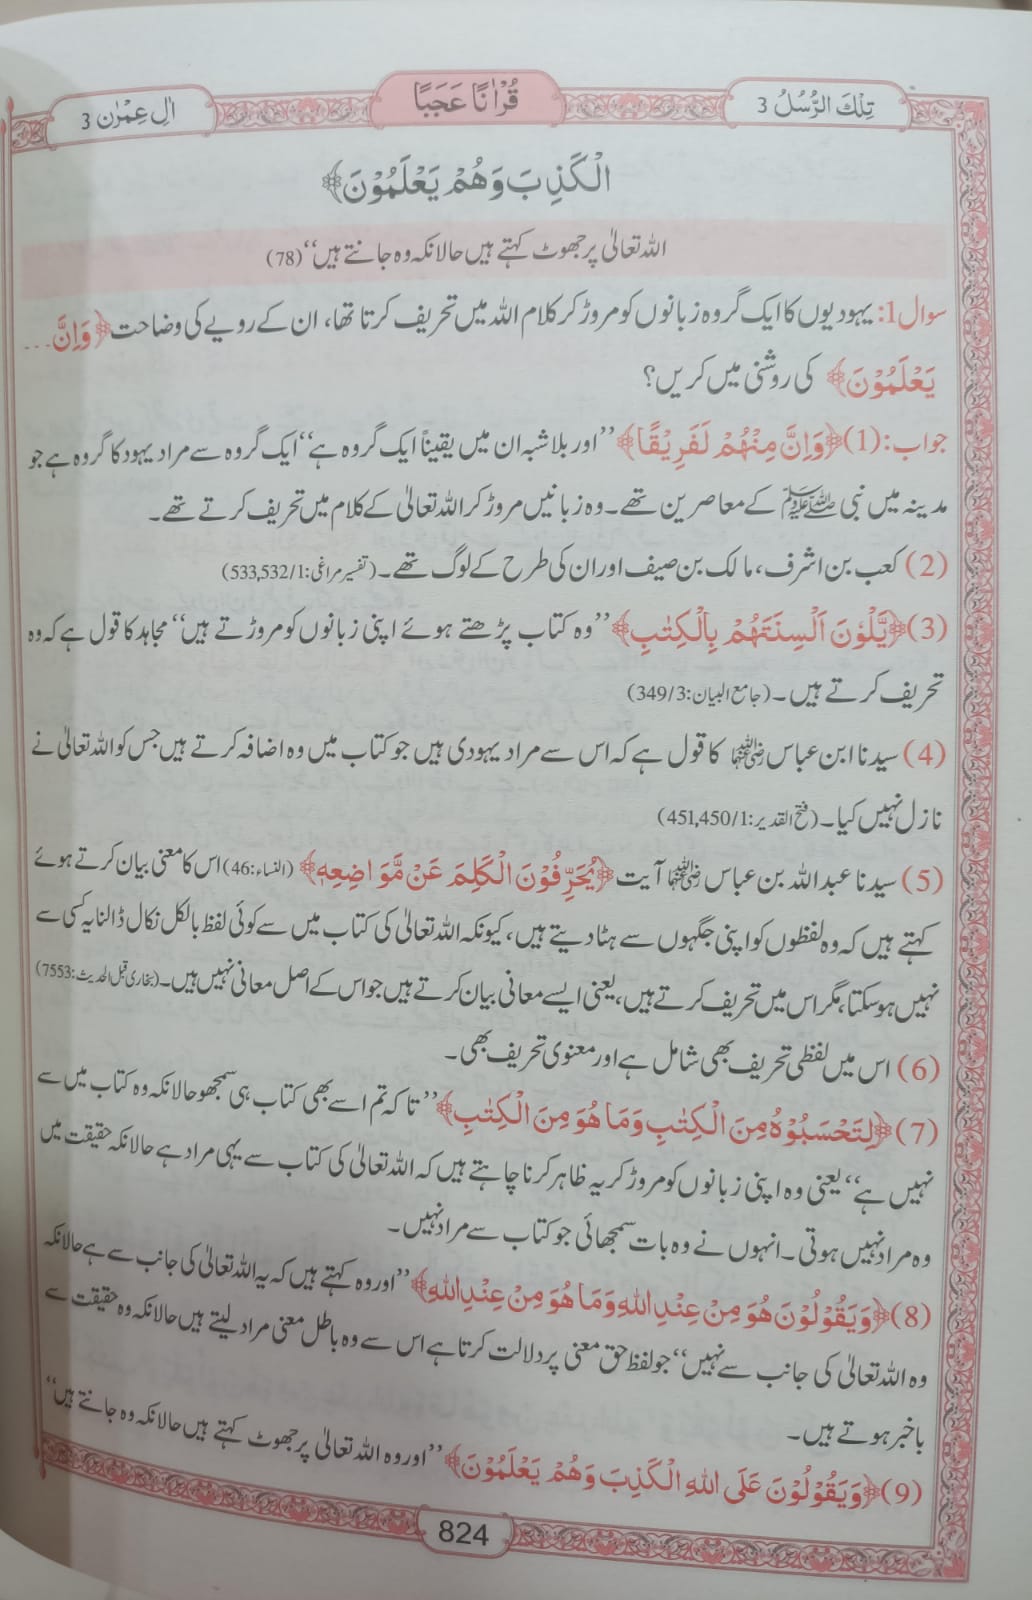 تِلْكَ الرُّسُلُ 3
قُرْاٰنًا عَجَبًا
اٰلِ عِمْرٰن 3
الْكَذِبَ وَهُمْ يَعْلَمُوْنَ﴾
اللہ تعالیٰ پر جھوٹ کہتے ہیں حالانکہ وہ جانتے ہیں‘‘ (78)
سوال1: یہودیوں کا ایک گروہ زبانوں کو مروڑ کر کلام اللہ میں تحریف کرتا تھا، ان کے رویے کی وضاحت ﴿وَاِنَّ...
يَعْلَمُوْنَ﴾ کی روشنی میں کریں؟
جواب: (1) ﴿وَاِنَّ مِنْهُمْ لَفَرِيْقًا﴾ ’’اور بلاشبہ ان میں یقیناً ایک گروہ ہے‘‘ ایک گروہ سے مراد یہود کا گروہ ہے جو
مدینہ میں نبی ﷺ کے معاصرین تھے۔ وہ زبانیں مروڑ کر اللہ تعالیٰ کے کلام میں تحریف کرتے تھے۔
(2) کعب بن اشرف، مالک بن صیف اور ان کی طرح کے لوگ تھے۔ (تفسیر مراغی: 533,532/1)
(3) ﴿يَّلْوٗنَ اَلْسِنَتَهُمْ بِالْكِتٰبِ﴾ ’’وہ کتاب پڑھتے ہوئے اپنی زبانوں کو مروڑتے ہیں‘‘ مجاہد کا قول ہے کہ وہ
تحریف کرتے ہیں۔ (جامع البیان: 349/3)
(4) سیدنا ابن عباس رضی اللہ عنہما کا قول ہے کہ اس سے مراد یہودی ہیں جو کتاب میں وہ اضافہ کرتے ہیں جس کو اللہ تعالیٰ نے
نازل نہیں کیا۔ (فتح القدیر: 451,450/1)
(5) سیدنا عبداللہ بن عباس رضی اللہ عنہما آیت ﴿يُحَرِّفُوْنَ الْكَلِمَ عَنْ مَّوَاضِعِهٖ﴾ (النساء: 46) اس کا معنی بیان کرتے ہوئے
کہتے ہیں کہ وہ لفظوں کو اپنی جگہوں سے ہٹا دیتے ہیں، کیونکہ اللہ تعالیٰ کی کتاب میں سے کوئی لفظ بالکل نکال ڈالنا یہ کسی سے
نہیں ہو سکتا، مگر اس میں تحریف کرتے ہیں، یعنی ایسے معانی بیان کرتے ہیں جو اس کے اصل معانی نہیں ہیں۔ (بخاری قبل الحدیث: 7553)
(6) اس میں لفظی تحریف بھی شامل ہے اور معنوی تحریف بھی۔
(7) ﴿لِتَحْسَبُوْهُ مِنَ الْكِتٰبِ وَمَا هُوَ مِنَ الْكِتٰبِ﴾ ’’تاکہ تم اسے بھی کتاب ہی سمجھو حالانکہ وہ کتاب میں سے
نہیں ہے‘‘ یعنی وہ اپنی زبانوں کو مروڑ کر یہ ظاہر کرنا چاہتے ہیں کہ اللہ تعالیٰ کی کتاب سے یہی مراد ہے حالانکہ حقیقت میں
وہ مراد نہیں ہوتی۔ انہوں نے وہ بات سمجھائی جو کتاب سے مراد نہیں۔
(8) ﴿وَيَقُوْلُوْنَ هُوَ مِنْ عِنْدِ اللهِ وَمَا هُوَ مِنْ عِنْدِ اللهِ﴾ ’’اور وہ کہتے ہیں کہ یہ اللہ تعالیٰ کی جانب سے ہے حالانکہ
وہ اللہ تعالیٰ کی جانب سے نہیں‘‘ جو لفظ حق معنی پر دلالت کرتا ہے اس سے وہ باطل معنی مراد لیتے ہیں حالانکہ وہ حقیقت سے
باخبر ہوتے ہیں۔
(9) ﴿وَيَقُوْلُوْنَ عَلَى اللهِ الْكَذِبَ وَهُمْ يَعْلَمُوْنَ﴾ ’’اور وہ اللہ تعالیٰ پر جھوٹ کہتے ہیں حالانکہ وہ جانتے ہیں‘‘
824